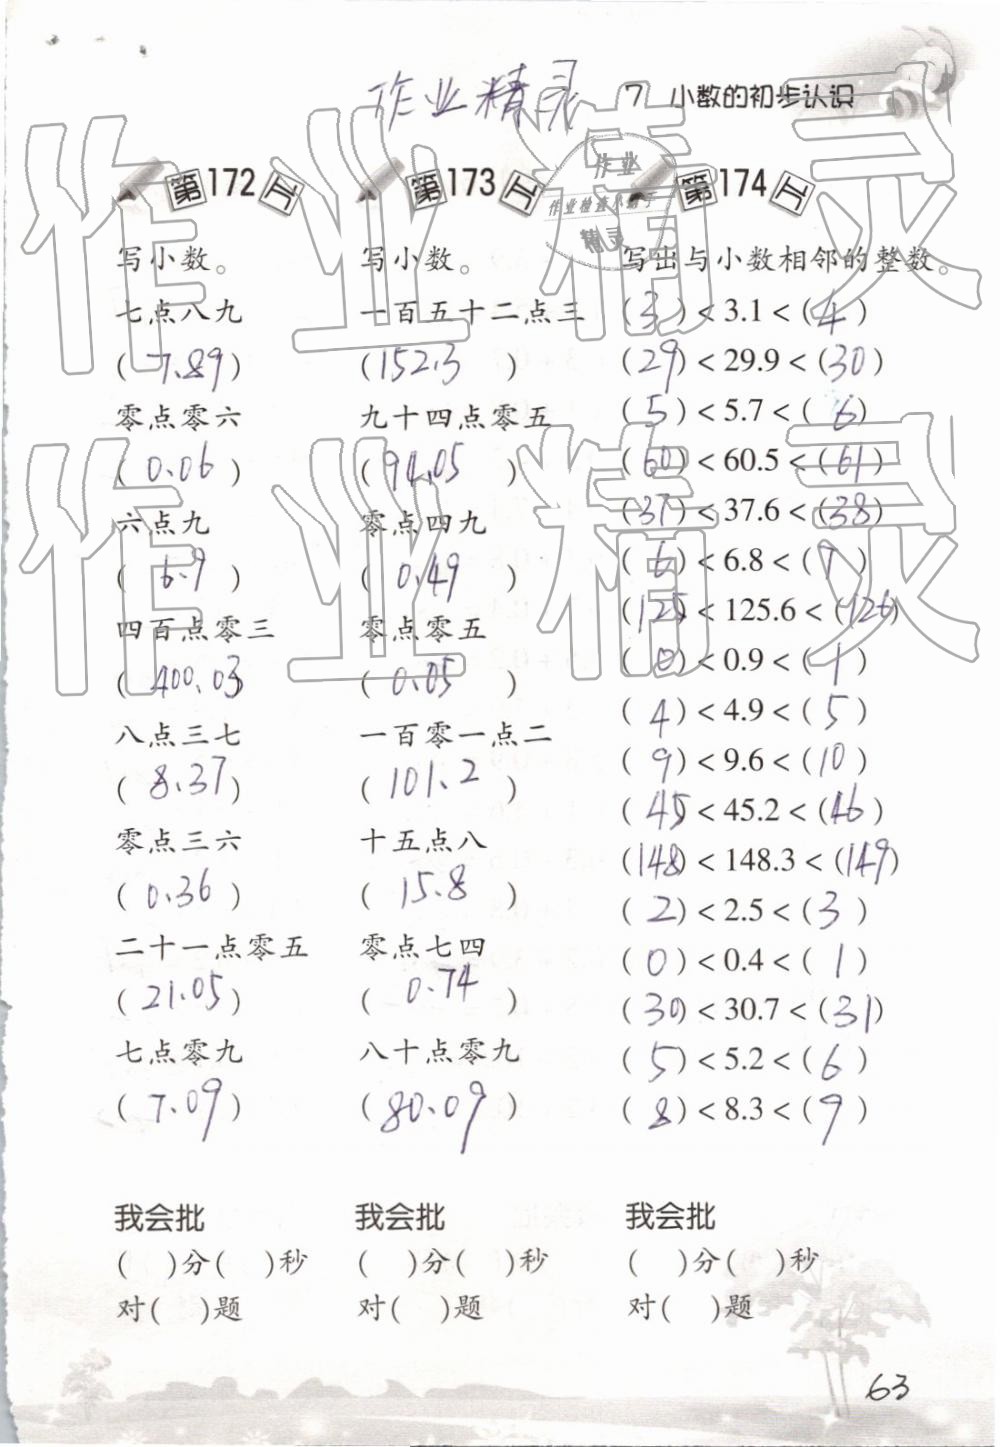 作业精灵
7 小数的初步认识
第172天
写小数。
七点八九
(7.89)
零点零六
(0.06)
六点九
(6.9)
四百点零三
(400.03)
八点三七
(8.37)
零点三六
(0.36)
二十一点零五
(21.05)
七点零九
(7.09)
我会批
( )分( )秒
对( )题
第173天
写小数。
一百五十二点三
(152.3)
九十四点零五
(94.05)
零点四九
(0.49)
零点零五
(0.05)
一百零一点二
(101.2)
十五点八
(15.8)
零点七四
(0.74)
八十点零九
(80.09)
我会批
( )分( )秒
对( )题
第174天
写出与小数相邻的整数。
(3)<3.1<(4)
(29)<29.9<(30)
(5)<5.7<(6)
(60)<60.5<(61)
(37)<37.6<(38)
(6)<6.8<(7)
(125)<125.6<(126)
(0)<0.9<(1)
(4)<4.9<(5)
(9)<9.6<(10)
(45)<45.2<(46)
(148)<148.3<(149)
(2)<2.5<(3)
(0)<0.4<(1)
(30)<30.7<(31)
(5)<5.2<(6)
(8)<8.3<(9)
我会批
( )分( )秒
对( )题
63
作业精灵
作业精灵
作业
精灵